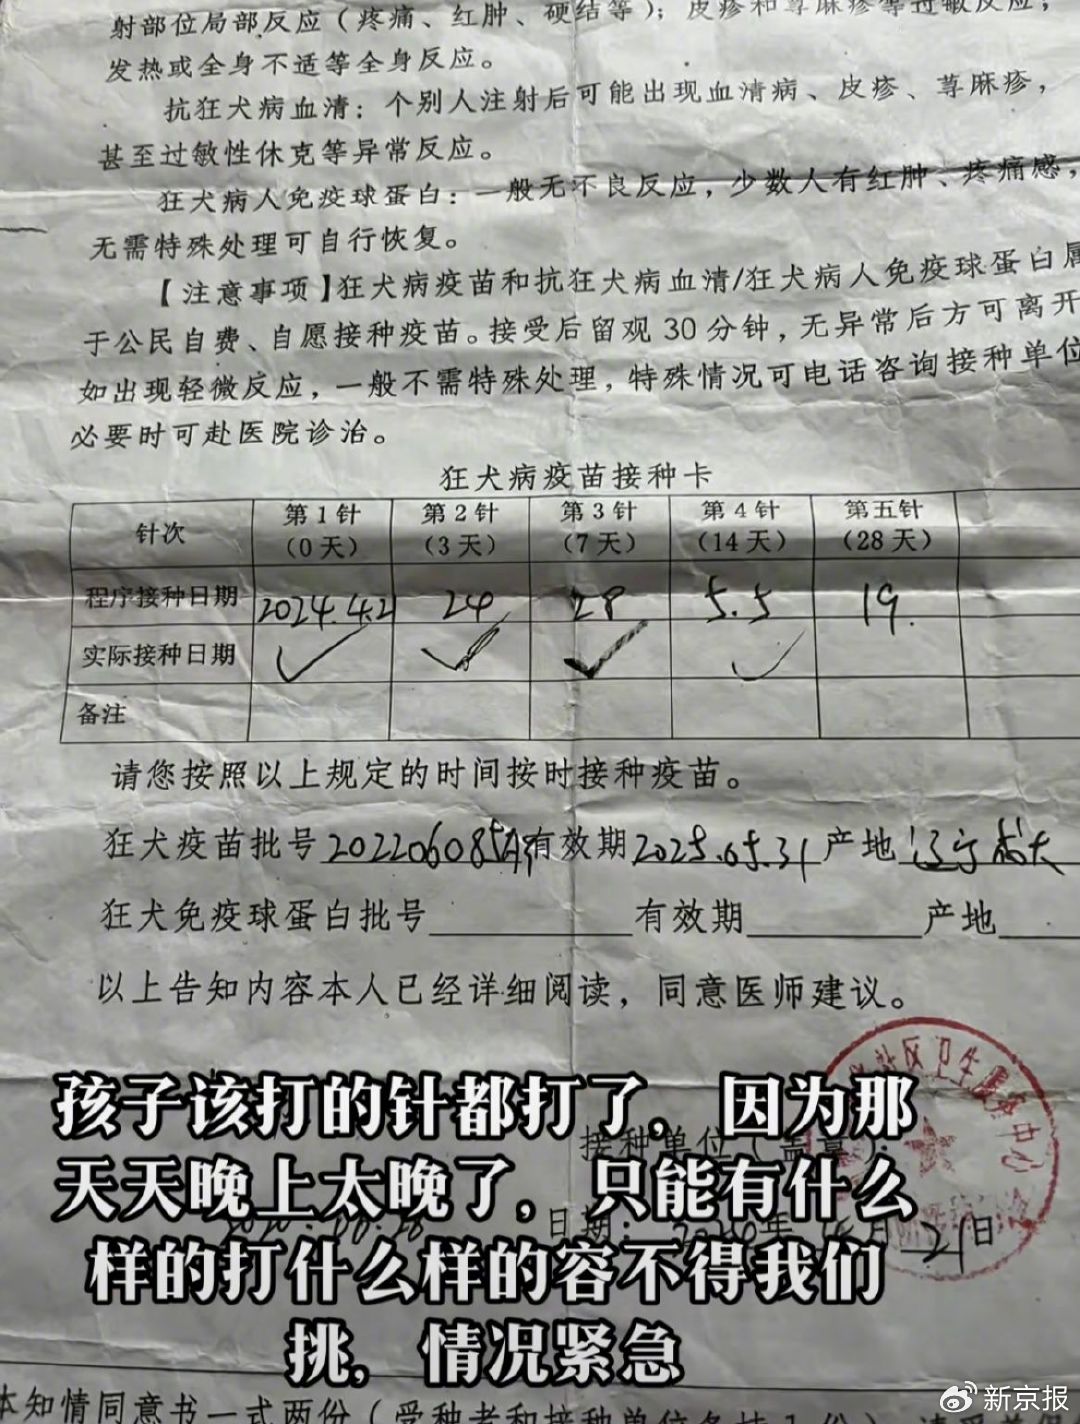 射部位局部反应（疼痛、红肿、硬结等）；皮疹和荨麻疹等过敏反应；
发热或全身不适等全身反应。
抗狂犬病血清：个别人注射后可能出现血清病、皮疹、荨麻疹，
甚至过敏性休克等异常反应。
狂犬病人免疫球蛋白：一般无不良反应，少数人有红肿、疼痛感，
无需特殊处理可自行恢复。
【注意事项】狂犬病疫苗和抗狂犬病血清/狂犬病人免疫球蛋白属
于公民自费、自愿接种疫苗。接受后留观30分钟，无异常后方可离开
如出现轻微反应，一般不需特殊处理，特殊情况可电话咨询接种单位
必要时可赴医院诊治。
狂犬病疫苗接种卡
针次 第1针（0天） 第2针（3天） 第3针（7天） 第4针（14天） 第五针（28天）
程序接种日期 2024.4.21 24 28 5.5 19.
实际接种日期 ✓ ✓ ✓ ✓
备注
请您按照以上规定的时间按时接种疫苗。
狂犬疫苗批号 202206085 有效期 2025.05.31 产地 辽宁成大
狂犬免疫球蛋白批号 有效期 产地
以上告知内容本人已经详细阅读，同意医师建议。
社区卫生服务中心
接种单位（盖章）：
日期： 年 月 21日
孩子该打的针都打了。因为那
天天晚上太晚了，只能有什么
样的打什么样的容不得我们
挑，情况紧急
本知情同意书一式两份（受种者和接种单位各持1份）
新京报